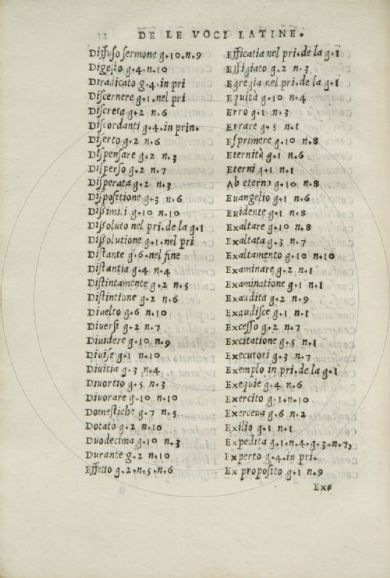 DE LE VOCI LATINE.
Diffuso sermone g.10.n.9
Digesto g.4.n.10
Dradicato g.4.in pri
Discernere g.1.nel pri
Discreta g.2 n.6
Discordanti g.4.in prin.
Diserto g.2 n.6
Dispensare g.2 n.3
Disperso g.2 n.7
Disperata g.2 n.3
Dispositione g.3 n.6
Dissimili g.10 n.10
Dissoluto nel pri.de la g.1
Dissolutione g.1.nel pri
Distante g.6.nel fine
Distantia g.4 n.4
Distintamente g.2 n.5
Distintione g.2 n.6
Diuelto g.6 n.10
Diuersi g.2 n.7
Diuidere g.10 n.9
Diuise g.1 n.10
Diuitia g.3 n.4
Diuortio g.5 n.3
Diuorare g.10 n.10
Domestiche g.7 n.5
Dotato g.2 n.10
Duodecima g.10 n.3
Durante g.2 n.10
Effetto g.2.n.5.n.6
Efficatia nel pri.de la g.1
Effigiato g.2 n.3
Egregia nel pri.de la g.1
Equita g.10 n.4
Ergo g.1 n.3
Errate g.5 n.1
Esprimere g.10 n.8
Eternità g.1 n.6
Eterni g.1 n.1
Ab eterno g.10 n.8
Euangelio g.1 n.6
Euidente g.1 n.8
Exaltare g.10 n.8
Exaltata g.3 n.7
Exaltamento g.10 n.10
Examinare g.2 n.1
Examinatione g.1 n.1
Exaudita g.2 n.9
Exaudisce g.1 n.1
Excesso g.2 n.7
Excitatione g.5 n.1
Executori g.3 n.7
Exemplo in pri.de la g.1
Exequie g.4 n.6
Exercito g.1.n.10
Exerceua g.6 n.2
Exilio g.1 n.1
Expedita g.1.n.4.g.3.n.7,
Experto g.4.in pri.
Ex proposito g.1 n.9